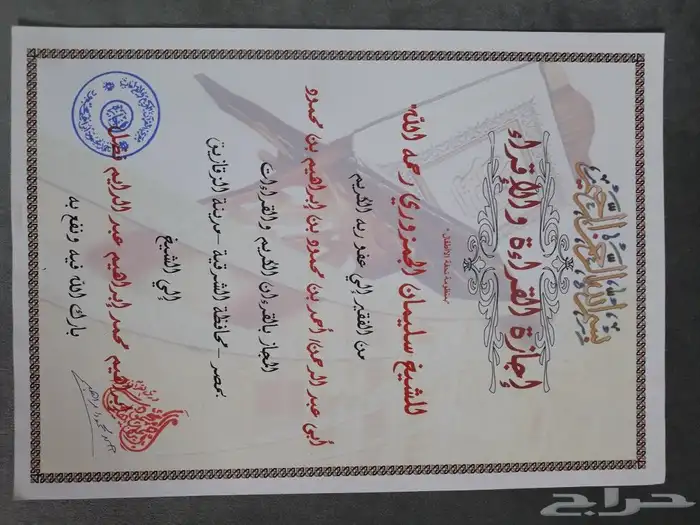 بسم الله الرحمن الرحيم
إجازة القراءة والإقراء
"منظومة تحفة الأطفال"
للشيخ سليمان الجمزوري رحمه الله
من الفقير إلي عفو ربه الكريم
أبي عبد الرحمن/ أحمد بن محمود بن إبراهيم بن محمود
المجاز بالقرءان الكريم والقراءات
بمصر - محافظة الشرقية - مدينة الزقازيق
إلي الشيخ
إبراهيم محمد إبراهيم عبد الدايم
بارك الله فيه ونفع به
حراج